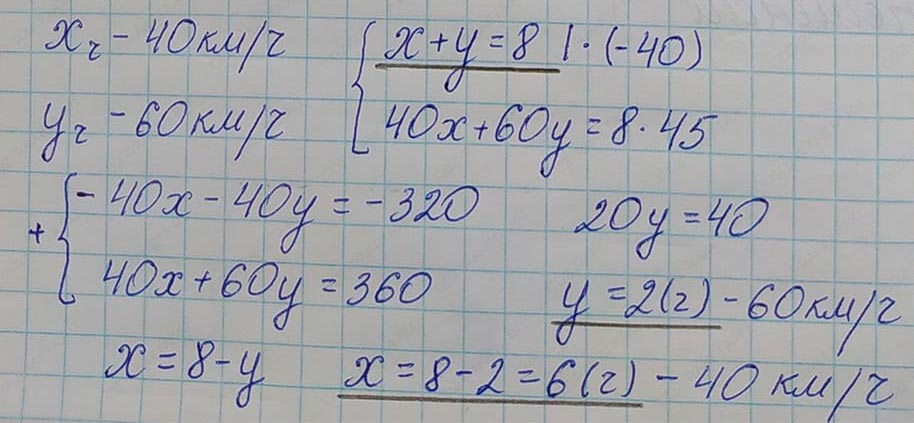 x ч - 40 км/ч
y ч - 60 км/ч
x + y = 8 | · (-40)
40x + 60y = 8 · 45
+ - 40x - 40y = -320
40x + 60y = 360
20y = 40
y = 2 (ч) - 60 км/ч
x = 8 - y
x = 8 - 2 = 6 (ч) - 40 км/ч